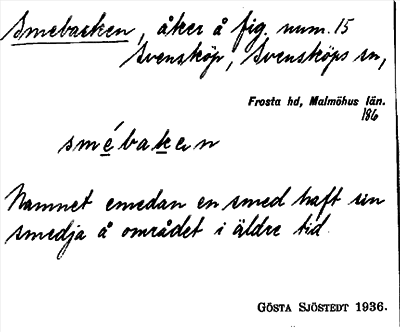 Smebacken, åker å fig. num. 15
Svensköp, Svensköps sn,
Frosta hd, Malmöhus län.
186
smébaken
Namnet emedan en smed haft sin
smedja å området i äldre tid.
GÖSTA SJÖSTEDT 1936.